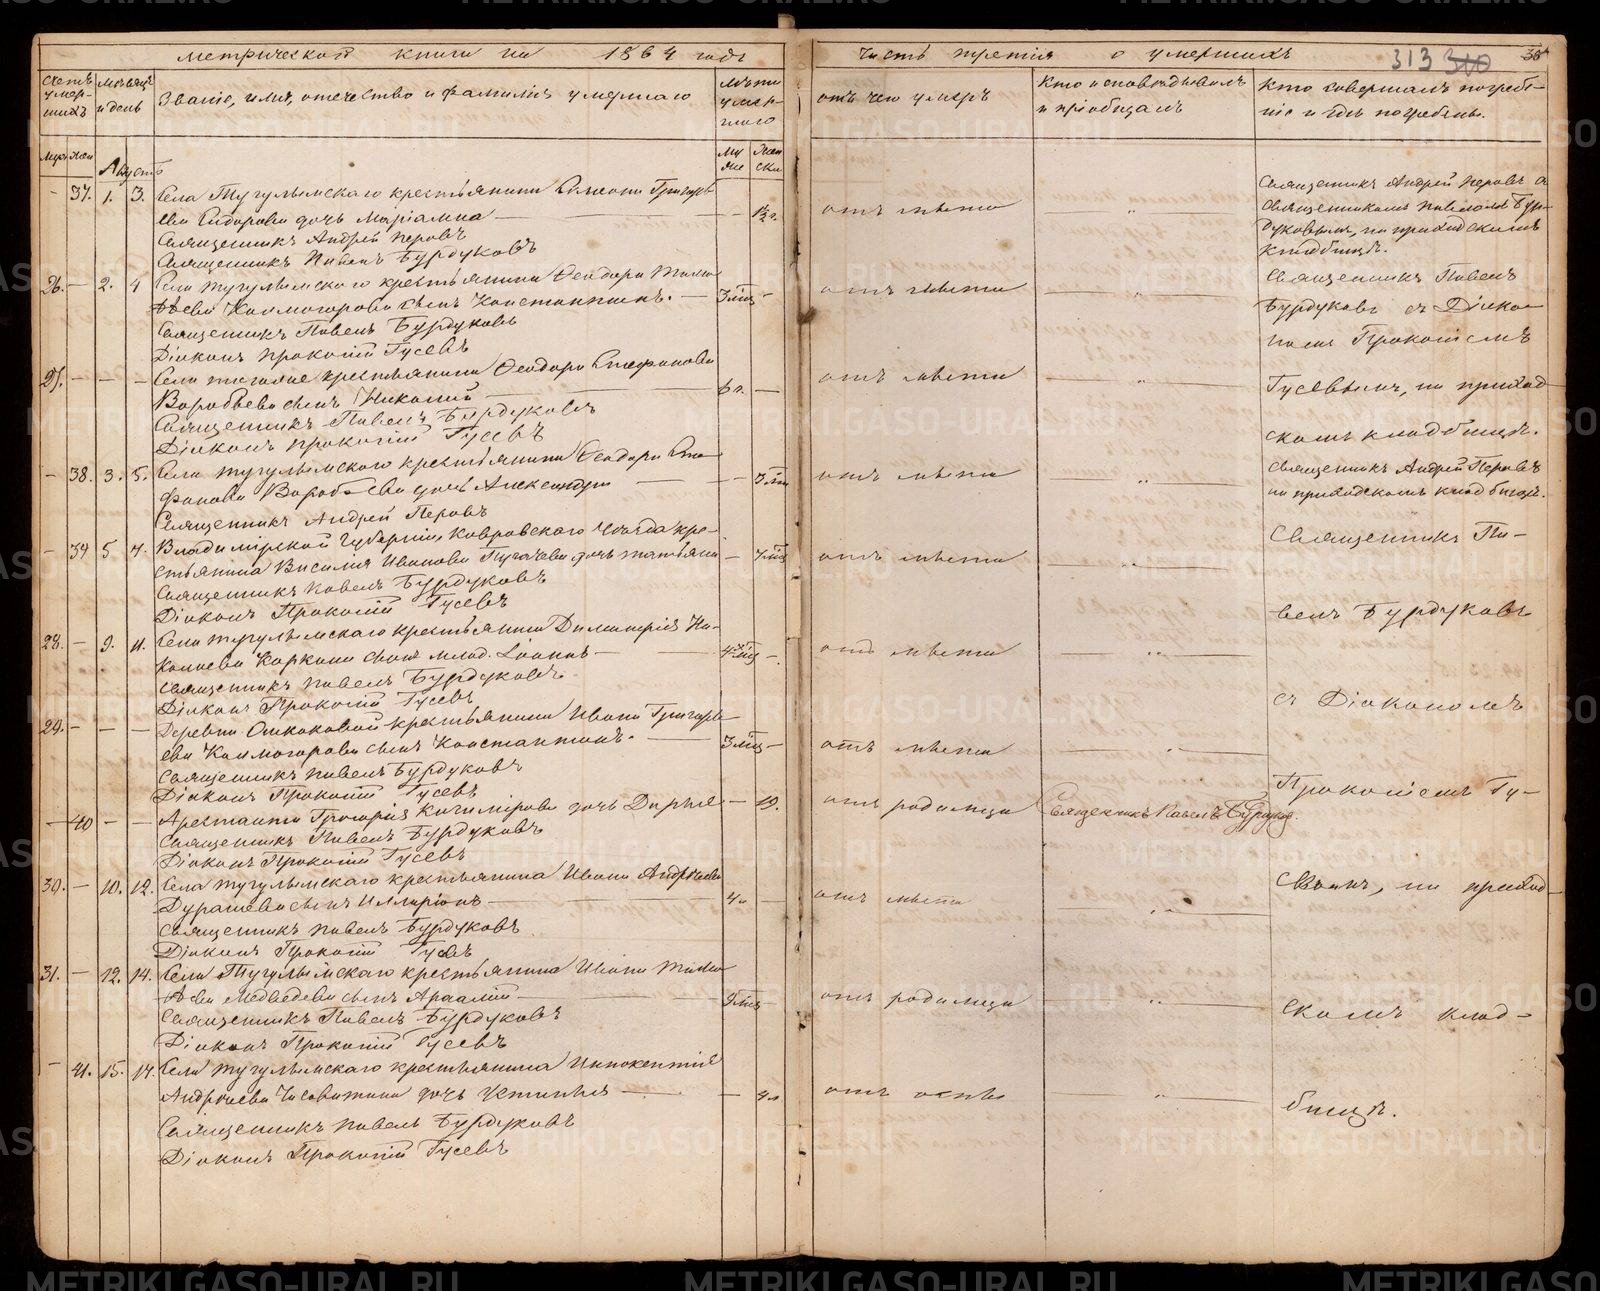 метрической книги на 1864 годъ
Счетъ умер-
шихъ
Мѣсяцъ
и день
Званіе, имя, отечество и фамилія умершаго
Лѣта
умер-
шаго
Муж Жен
Му
же Жен
ски
Августъ
- 37. 1. 3. Села Тугулымскаго крестьянина Симеона Григорь
ева Сидорова дочь Маріамна — - 1½ г.
Священникъ Андрей Перовъ
Священникъ Павелъ Бурдуковъ
26. - 2. 4 Села Тугулымскаго крестьянина Ѳеодора Тимо
ѳеева Колмогорова сынъ Константинъ. — 3 мѣц -
Священникъ Павелъ Бурдуковъ
Діаконъ Прокопій Гусевъ
27. — — — Села тогоже крестьянина Ѳеодора Стефанова
Воробьева сынъ Николай — 6 г. —
Священникъ Павелъ Бурдуковъ
Діаконъ Прокопій Гусевъ
- 38. 3. 5. Села Тугулымскаго крестьянина Ѳеодора Сте
фанова Воробьева дочь Александра — - 3 мц
Священникъ Андрей Перовъ
- 39 5 7. Владимірской Губерніи, Ковровскаго Уѣзда кре-
стьянина Василія Иванова Пугачева дочь Татьяна — 7 мѣц
Священникъ Павелъ Бурдуковъ
Діаконъ Прокопій Гусевъ
28. — 9. 11. Села Тугулымскаго крестьянина Димитрія Ни-
колаева Коркина сынъ млад. Іоаннъ — 4 мѣц -.
Священникъ Павелъ Бурдуковъ.
Діаконъ Прокопій Гусевъ
29. — — — Деревни крестьянина Ивана Григорь
ева Колмогорова сынъ Константинъ. — 3 мѣц —
Священникъ Павелъ Бурдуковъ
Діаконъ Прокопій Гусевъ
— 40 — — Арестанта Григорія дочь Дарья — 19.
Священникъ Павелъ Бурдуковъ
Діаконъ Прокопій Гусевъ
30. — 10. 12. Села Тугулымскаго крестьянина Ивана Андреева
сынъ Илларіонъ — 4 —
Священникъ Павелъ Бурдуковъ
Діаконъ Прокопій Гусевъ
31. — 12. 14. Села Тугулымскаго крестьянина Ивана Тимо
ѳеева Медведева сынъ — 9 мѣц
Священникъ Павелъ Бурдуковъ
Діаконъ Прокопій Гусевъ
- 41. 15. 17. Села Тугулымскаго крестьянина Иннокентія
Андреева дочь Устинья — — 4 л
Священникъ Павелъ Бурдуковъ
Діаконъ Прокопій Гусевъ
часть третія о умершихъ 313 310 36
отъ чего умеръ
Кто исповѣдывалъ
и пріобщалъ
Кто совершалъ погребе-
ніе и гдѣ погребены.
отъ цвета — „ —
отъ цвета — „ —
отъ цвета — „ —
отъ цвета — „ —
отъ цвета — „ —
отъ цвета — „ —
отъ цвета — „ —
отъ родимца Священникъ Павелъ Бурдуков.
отъ цвета — „ —
отъ родимца — „ —
отъ оспы — „ —
Священникъ Андрей Перовъ съ
Священникомъ Павломъ Бур-
дуковымъ, на приходскомъ
кладбищѣ.
Священникъ Павелъ
Бурдуковъ съ Діако-
помъ Прокопіемъ
Гусевымъ, на приход-
скомъ кладбищѣ.
Священникъ Андрей Перовъ
на приходскомъ кладбищѣ.
Священникъ Па-
велъ Бурдуковъ
съ Діакономъ
Прокопіемъ Гу-
севымъ, на приход-
скомъ клад-
бищѣ.
METRIKI.GASO-URAL.RU